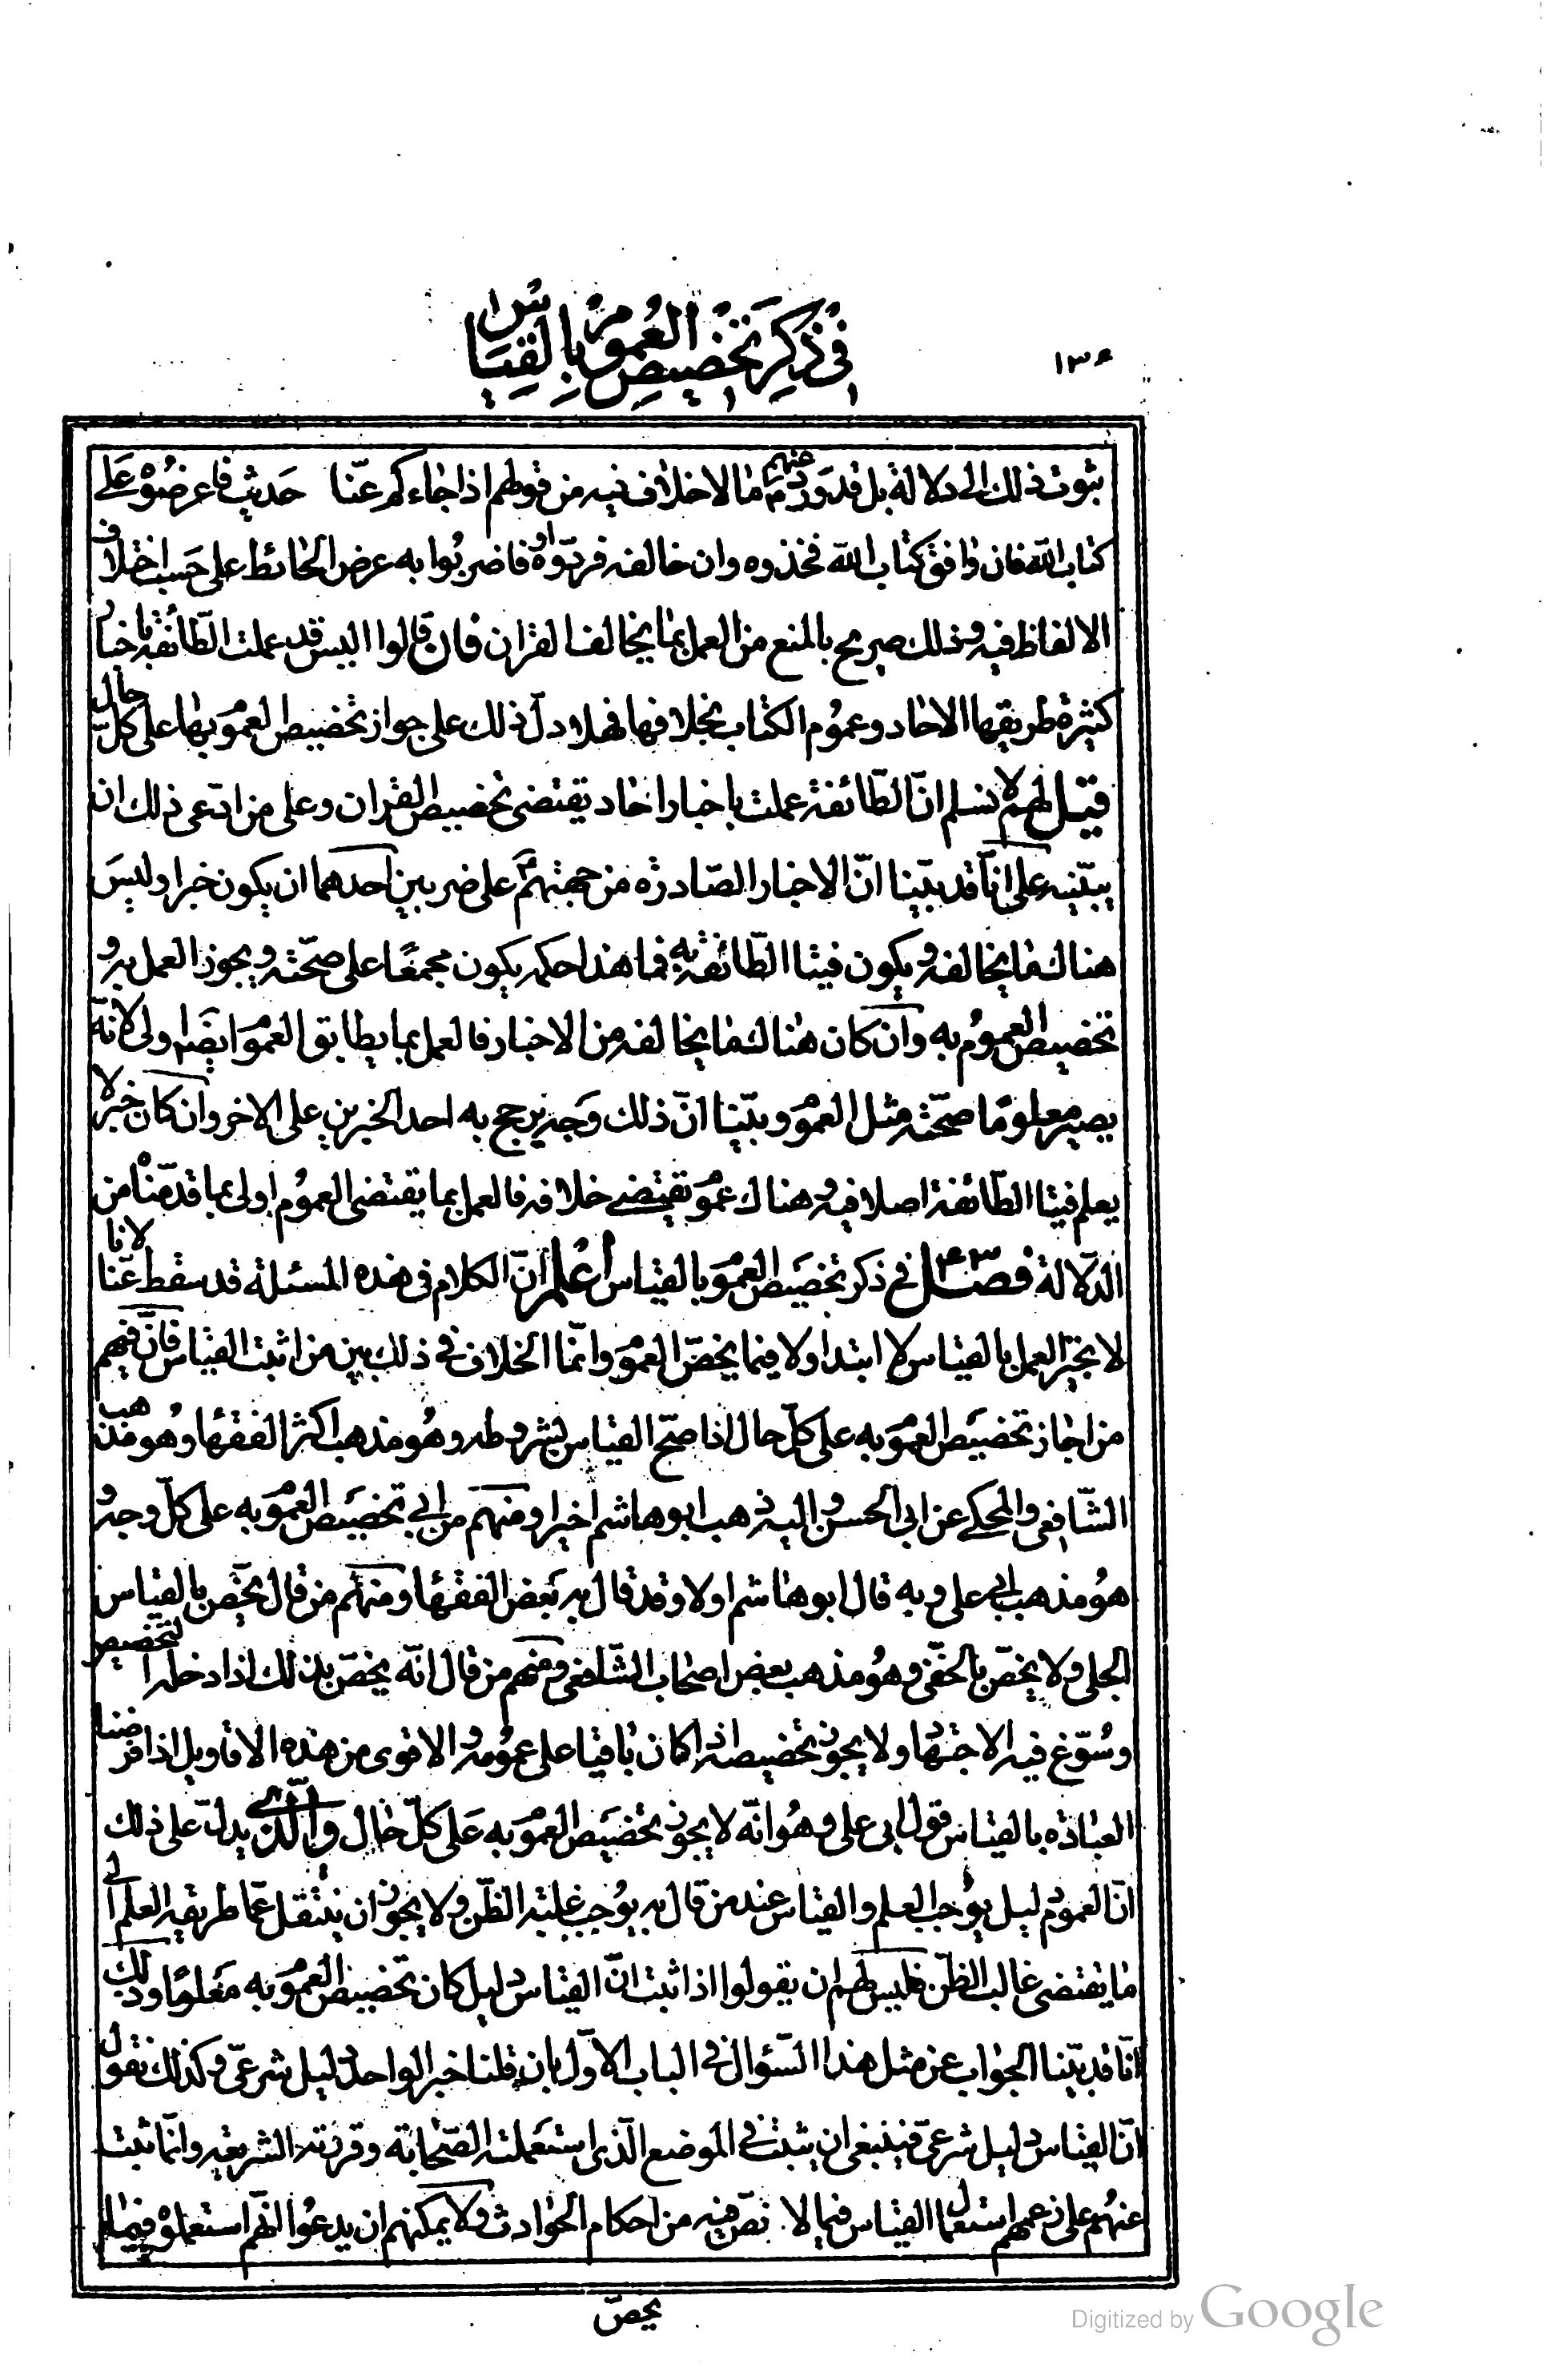 في ذكر تخصيص العموم بالقياس
١٣٤
ثبوت ذلك الى دلالة بل قد ورد عنهم ما لا خلاف فيه من قولهم اذا جاءكم عنّا حديث فاعرضوه على
كتاب الله فان وافق كتاب الله فخذوه وان خالفه فردّوه او فاضربوا به عرض الحائط على حسب اختلاف
الالفاظ فيه وذلك صريح بالمنع من العمل بما يخالف القران فان قالوا اليس قد عملت الطّائفة باخبار
كثيرة طريقها الاحاد وعموم الكتاب بخلافها فهلا دلّ ذلك على جواز تخصيص العموم بها على كلّ حال
قيل لهم لا نسلم انّ الطّائفة عملت باخبار احاد يقتضى تخصيص القران وعلى من ادّعى ذلك ان
يبيّنه على انّا قد بيّنا انّ الاخبار الصّادرة من جهتهم على ضربين احدهما ان يكون خبرا وليس
هناك ما يخالفه ويكون فتيا الطّائفة به فما هذا حكمه يكون مجمعا على صحّته ويجوز العمل به و
تخصيص العموم به وان كان هناك ما يخالفه من الاخبار فالعمل بما يطابق العموم ايضا اولى لانّه
يصير معلوما صحّته مثل العموم وبيّنا انّ ذلك وجه يرجح به احد الخبرين على الاخر وان كان خبر لا
يعلم فتيا الطّائفة اصلا فيه وهناك عموم يقتضى خلافه فالعمل بما يقتضى العموم اولى بما قدّمناه من
الدّلالة فصل في ذكر تخصيص العموم بالقياس اعلم انّ الكلام فى هذه المسئلة قد سقط عنّا لانا
لا نجيز العمل بالقياس لا ابتدا ولا فيما يخصّ العموم وانّما الخلاف في ذلك بين من اثبت القياس فانّ فيهم
من اجاز تخصيص العموم به على كلّ حال اذا صحّ القياس بشروطه وهو مذهب اكثر الفقهاء وهو مذهب
الشّافعى والمحكي عن ابى الحسن واليه ذهب ابو هاشم اخيرا ومنهم من ابى تخصيص العموم به على كلّ وجه و
هو مذهب ابى على وبه قال ابو هاشم اولا وقد قال به بعض الفقهاء ومنهم من قال يخصّ بالقياس
الجلى ولا يخصّ بالخفّى وهو مذهب بعض اصحاب الشّافعى ومنهم من قال انّه يخصّ بذلك اذا دخله التخصيص
وسوّغ فيه الاجتهاد ولا يجوز تخصيصه اذا كان باقيا على عمومه والاقوى من هذه الاقاويل اذا فرضنا
العبادة بالقياس قول ابى على وهو انّه لا يجوز تخصيص العموم به على كلّ حال والّذي يدلّ على ذلك
انّ العموم دليل يوجب العلم والقياس عند من قال به يوجب غلبة الظّن ولا يجوز ان ينتقل عمّا طريقه العلم الى
ما يقتضى غالب الظّن فليس لهم ان يقولوا اذا ثبت انّ القياس دليل كان تخصيص العموم به معلوما وذلك
انّا قد بيّنا الجواب عن مثل هذا السّؤال فى الباب الاوّل بان قلنا خبر الواحد دليل شرعىّ وكذلك نقول
انّ القياس دليل شرعىّ فينبغى ان يثبت فى الموضع الّذى استعملته الصّحابة وقررته الشريعة وانّما ثبت
عنهم على زعمهم استعمال القياس فيما لا نصّ فيه من احكام الحوادث ولا يمكنهم ان يدعوا انّهم استعملوه فيما
يخصّ
Digitized by Google